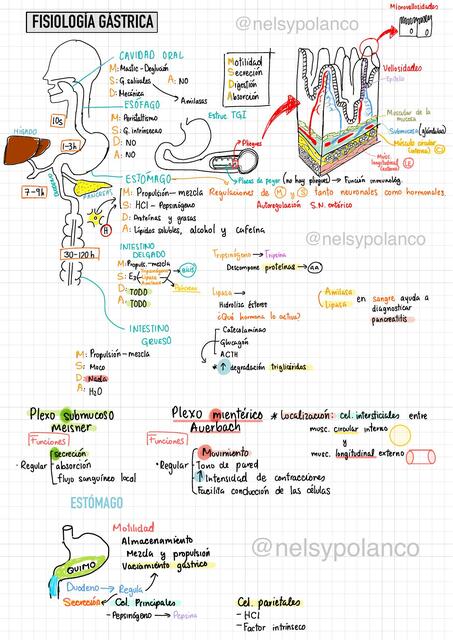 FISIOLOGÍA GÁSTRICA
@nelsypolanco
Microvellosidades
CAVIDAD ORAL
M: Mastic-Deglución
S: G. salivales
A: NO
D: Mecánica
Amilasas
Motilidad
Secreción
Digestión
Absorción
Vellosidades
Epitelio
ESÓFAGO
M: Peristaltismo
S: G. intrínsecas
D: NO
A: NO
10s
1-3h
HÍGADO
Estruc TGI
Pliegues
Muscular de la mucosa
Submucosa (glándulas)
Músculo circular (interno)
Musc longitudinal (externo)
Placas de peyer (no hay pliegues) → Función inmunológ.
ESTÓMAGO
7-9h
PÁNCREAS
M: Propulsión-mezcla
S: HCl - Pepsinógeno
D: Proteínas y grasas
A: Lípidos solubles, alcohol y cafeína
H
Regulaciones de M y S tanto neuronales como hormonales.
Autorregulación S.N. entérico
@nelsypolanco
30-120h
INTESTINO DELGADO
M: Propuls.-mezcla
Bilis
Páncreas
D: TODO
A: TODO
Tripsinógeno → Tripsina
Descompone proteínas → AA
Lipasa →
Hidroliza ésteres
¿Qué hormona lo activa?
Catecolaminas
Glucagón
ACTH
* ↑ degradación triglicéridos
Amilasa
Lipasa
en sangre ayuda a diagnosticar pancreatitis
INTESTINO GRUESO
M: Propulsión-mezcla
S: Moco
D: Nada
A: H2O
Plexo submucoso
Meisner
Funciones
Regular
secreción
absorción
flujo sanguíneo local
Plexo mientérico
Auerbach
Funciones
Regular
Movimiento
Tono de pared
↑ Intensidad de contracciones
Facilita conducción de las células
* Localización: cel. intersticiales entre
musc. circular interno
y
musc. longitudinal externo
ESTÓMAGO
Motilidad
Almacenamiento
Mezcla y propulsión
Vaciamiento gástrico
QUIMO
Duodeno → Regula
@nelsypolanco
Secreción
Cel. Principales
- Pepsinógeno → Pepsina
Cel. parietales
- HCl
- Factor intrínseco